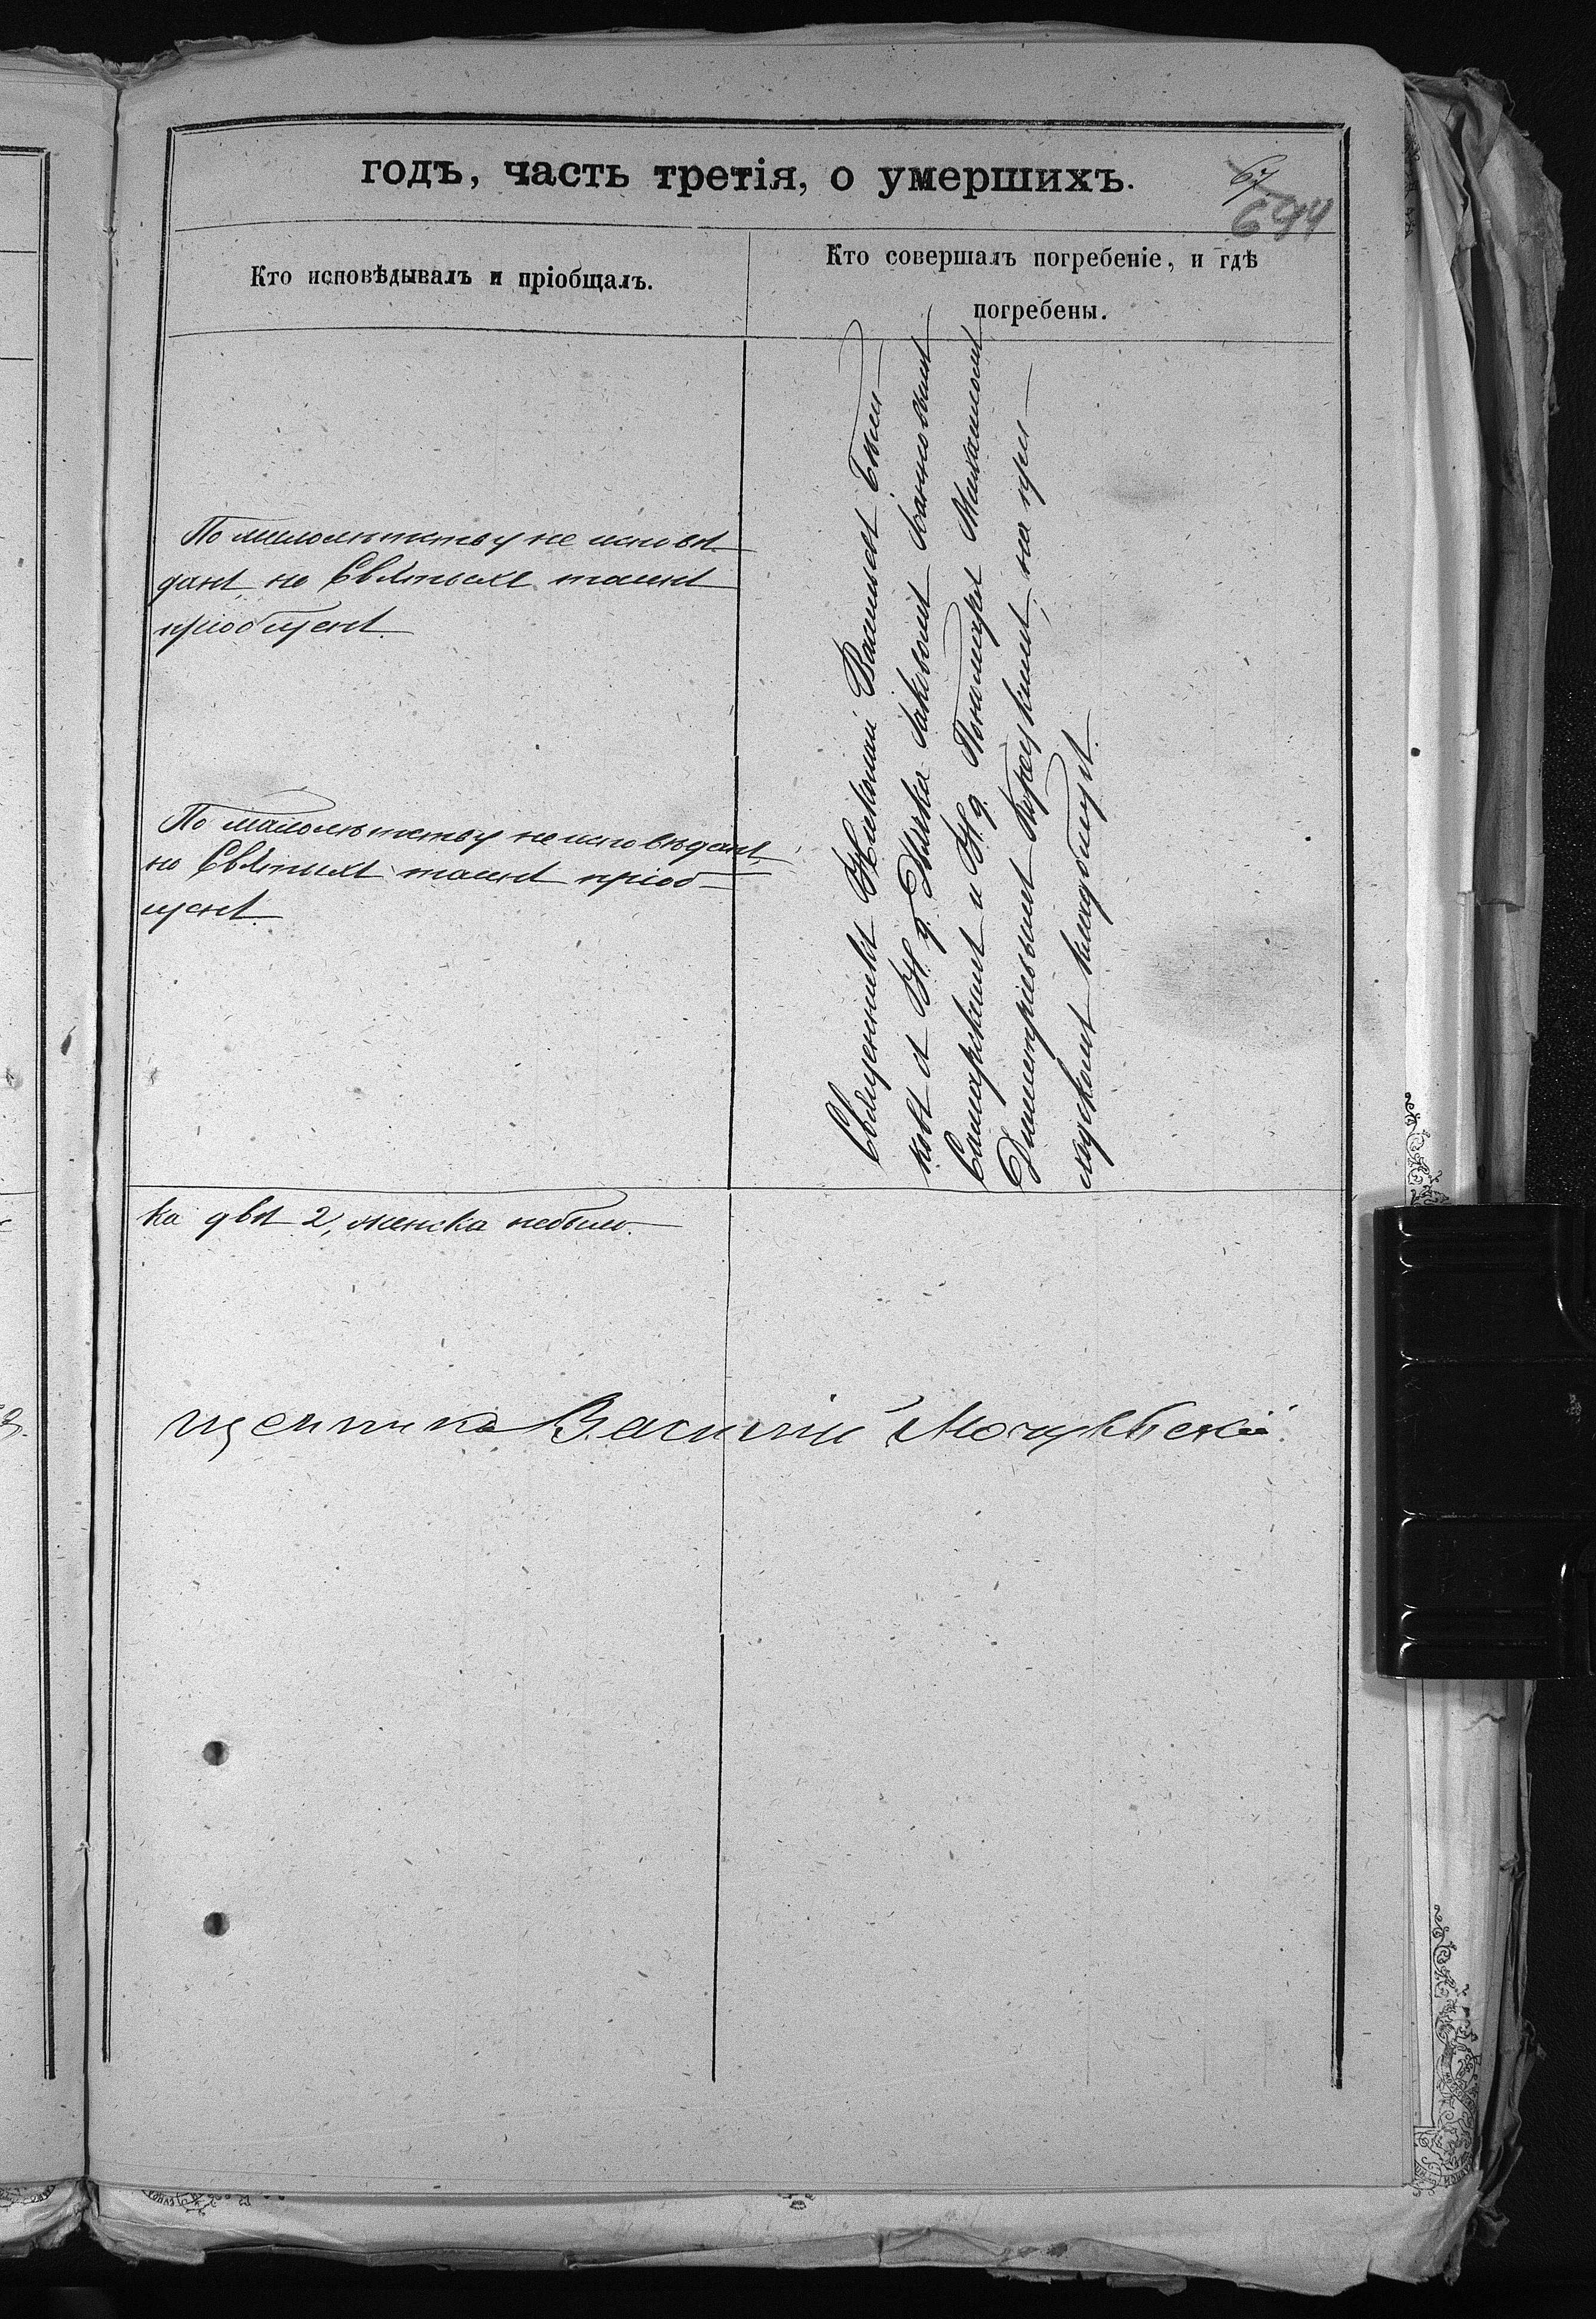 годъ, часть третія, о умершихъ.
67
Кто исповѣдывалъ и пріобщалъ.
Кто совершалъ погребеніе, и гдѣ
погребены.
По малолѣтству не исповѣ-
данъ, но Святыхъ таинъ
пріобщенъ.
По малолѣтству не исповѣданъ,
но Святыхъ таинъ пріоб-
щенъ.
Священникъ Николай Васильевъ
ковъ съ И. д. Дьячка Іаковомъ Іоанновымъ
Самарскимъ и И. д. Пономаря Михаиломъ
Димитріевымъ на при-
ходскомъ кладбищѣ.
ка двѣ 2, женска небыло.
щенника Василій